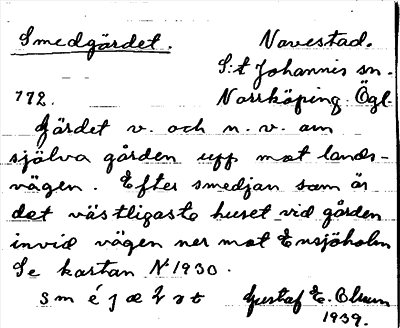 Smedgärdet. Navestad.
S:t Johannis sn.
772. Norrköping Ögl.
Gärdet v. och n. v. om
själva gården upp mot lands-
vägen. Efter smedjan som är
det västligaste huset vid gården
invid vägen ner mot Ensjöholm
Se kartan N 1930.
Gustaf E. Olsson
1939.